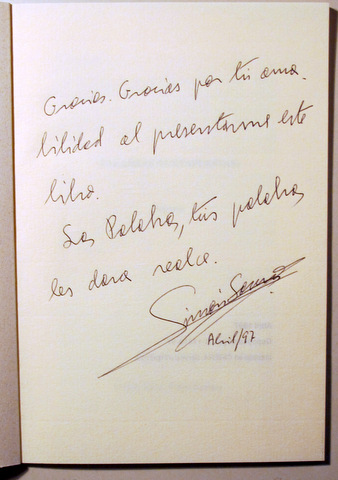 Gracias. Gracias por tu ama-
bilidad al presentarme este
libro.
Las Palabras, tus palabras
les dara realce.
Simón
Abril/97